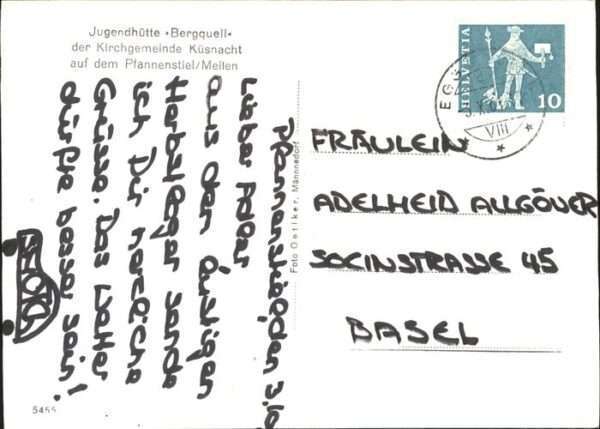 Jugendhütte «Bergquell»
der Kirchgemeinde Küsnacht
auf dem Pfannenstiel/Meilen
HELVETIA
10
EG
VIII
Pfannenstiel, den 3.10
Lieber
Aus dem
Herbstlager sende
ich Dir herzliche
Grüsse. Das Wetter
dürfte besser sein!
Foto Oetiker, Männedorf
FRÄULEIN
ADELHEID ALLGÖWER
SOCINSTRASSE 45
BASEL
5455